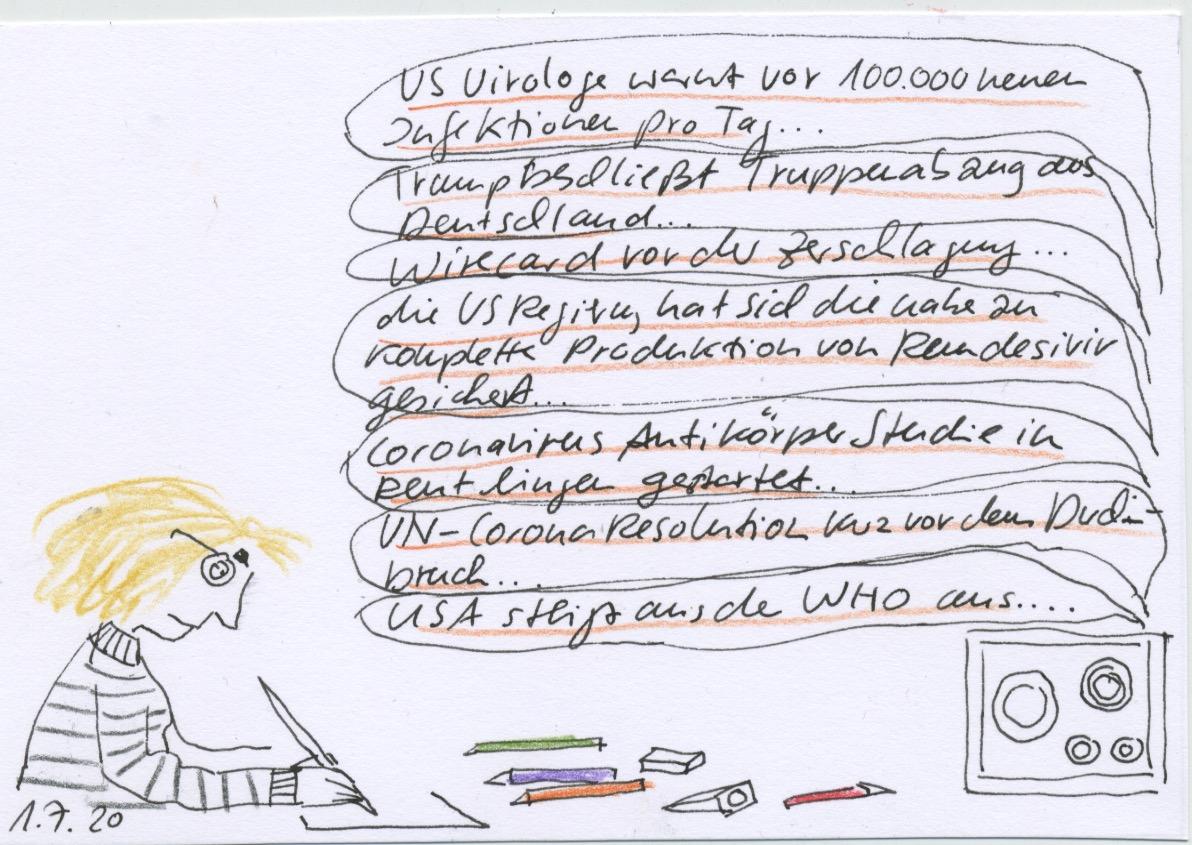 US Virologe warnt vor 100.000 neuen
Infektionen pro Tag...
Trump beschließt Truppenabzug aus
Deutschland...
Wirecard vor der Zerschlagung...
die US Regirung hat sich die nahe zu
komplette Produktion von Remdesivir
gesichert...
Coronavirus Antikörper Studie in
Reutlingen gestartet...
UN-Corona Resolution kurz vor dem Durch-
bruch...
USA steigt aus der WHO aus....
1.7.20